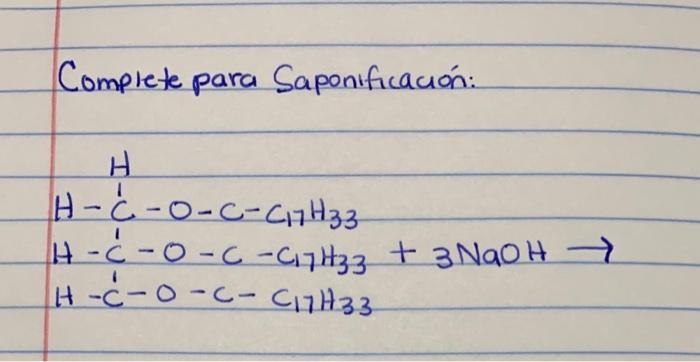 Complete para Saponificación:
H
H-C-O-C-C17H33
H-C-O-C-C17H33 + 3NaOH →
H-C-O-C-C17H33